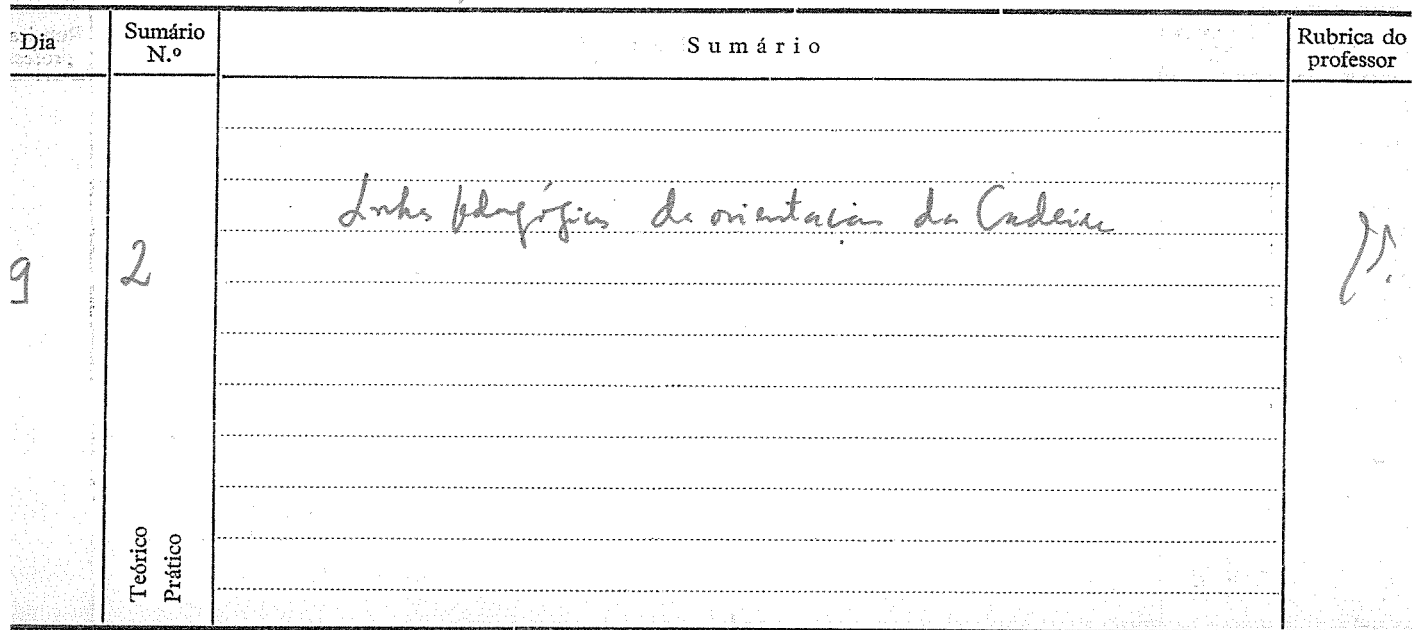 Dia
Sumário
N.º
Sumário
Rubrica do
professor
Linhas pedagógicas de orientação da Cadeira
9
2
Teórico
Prático